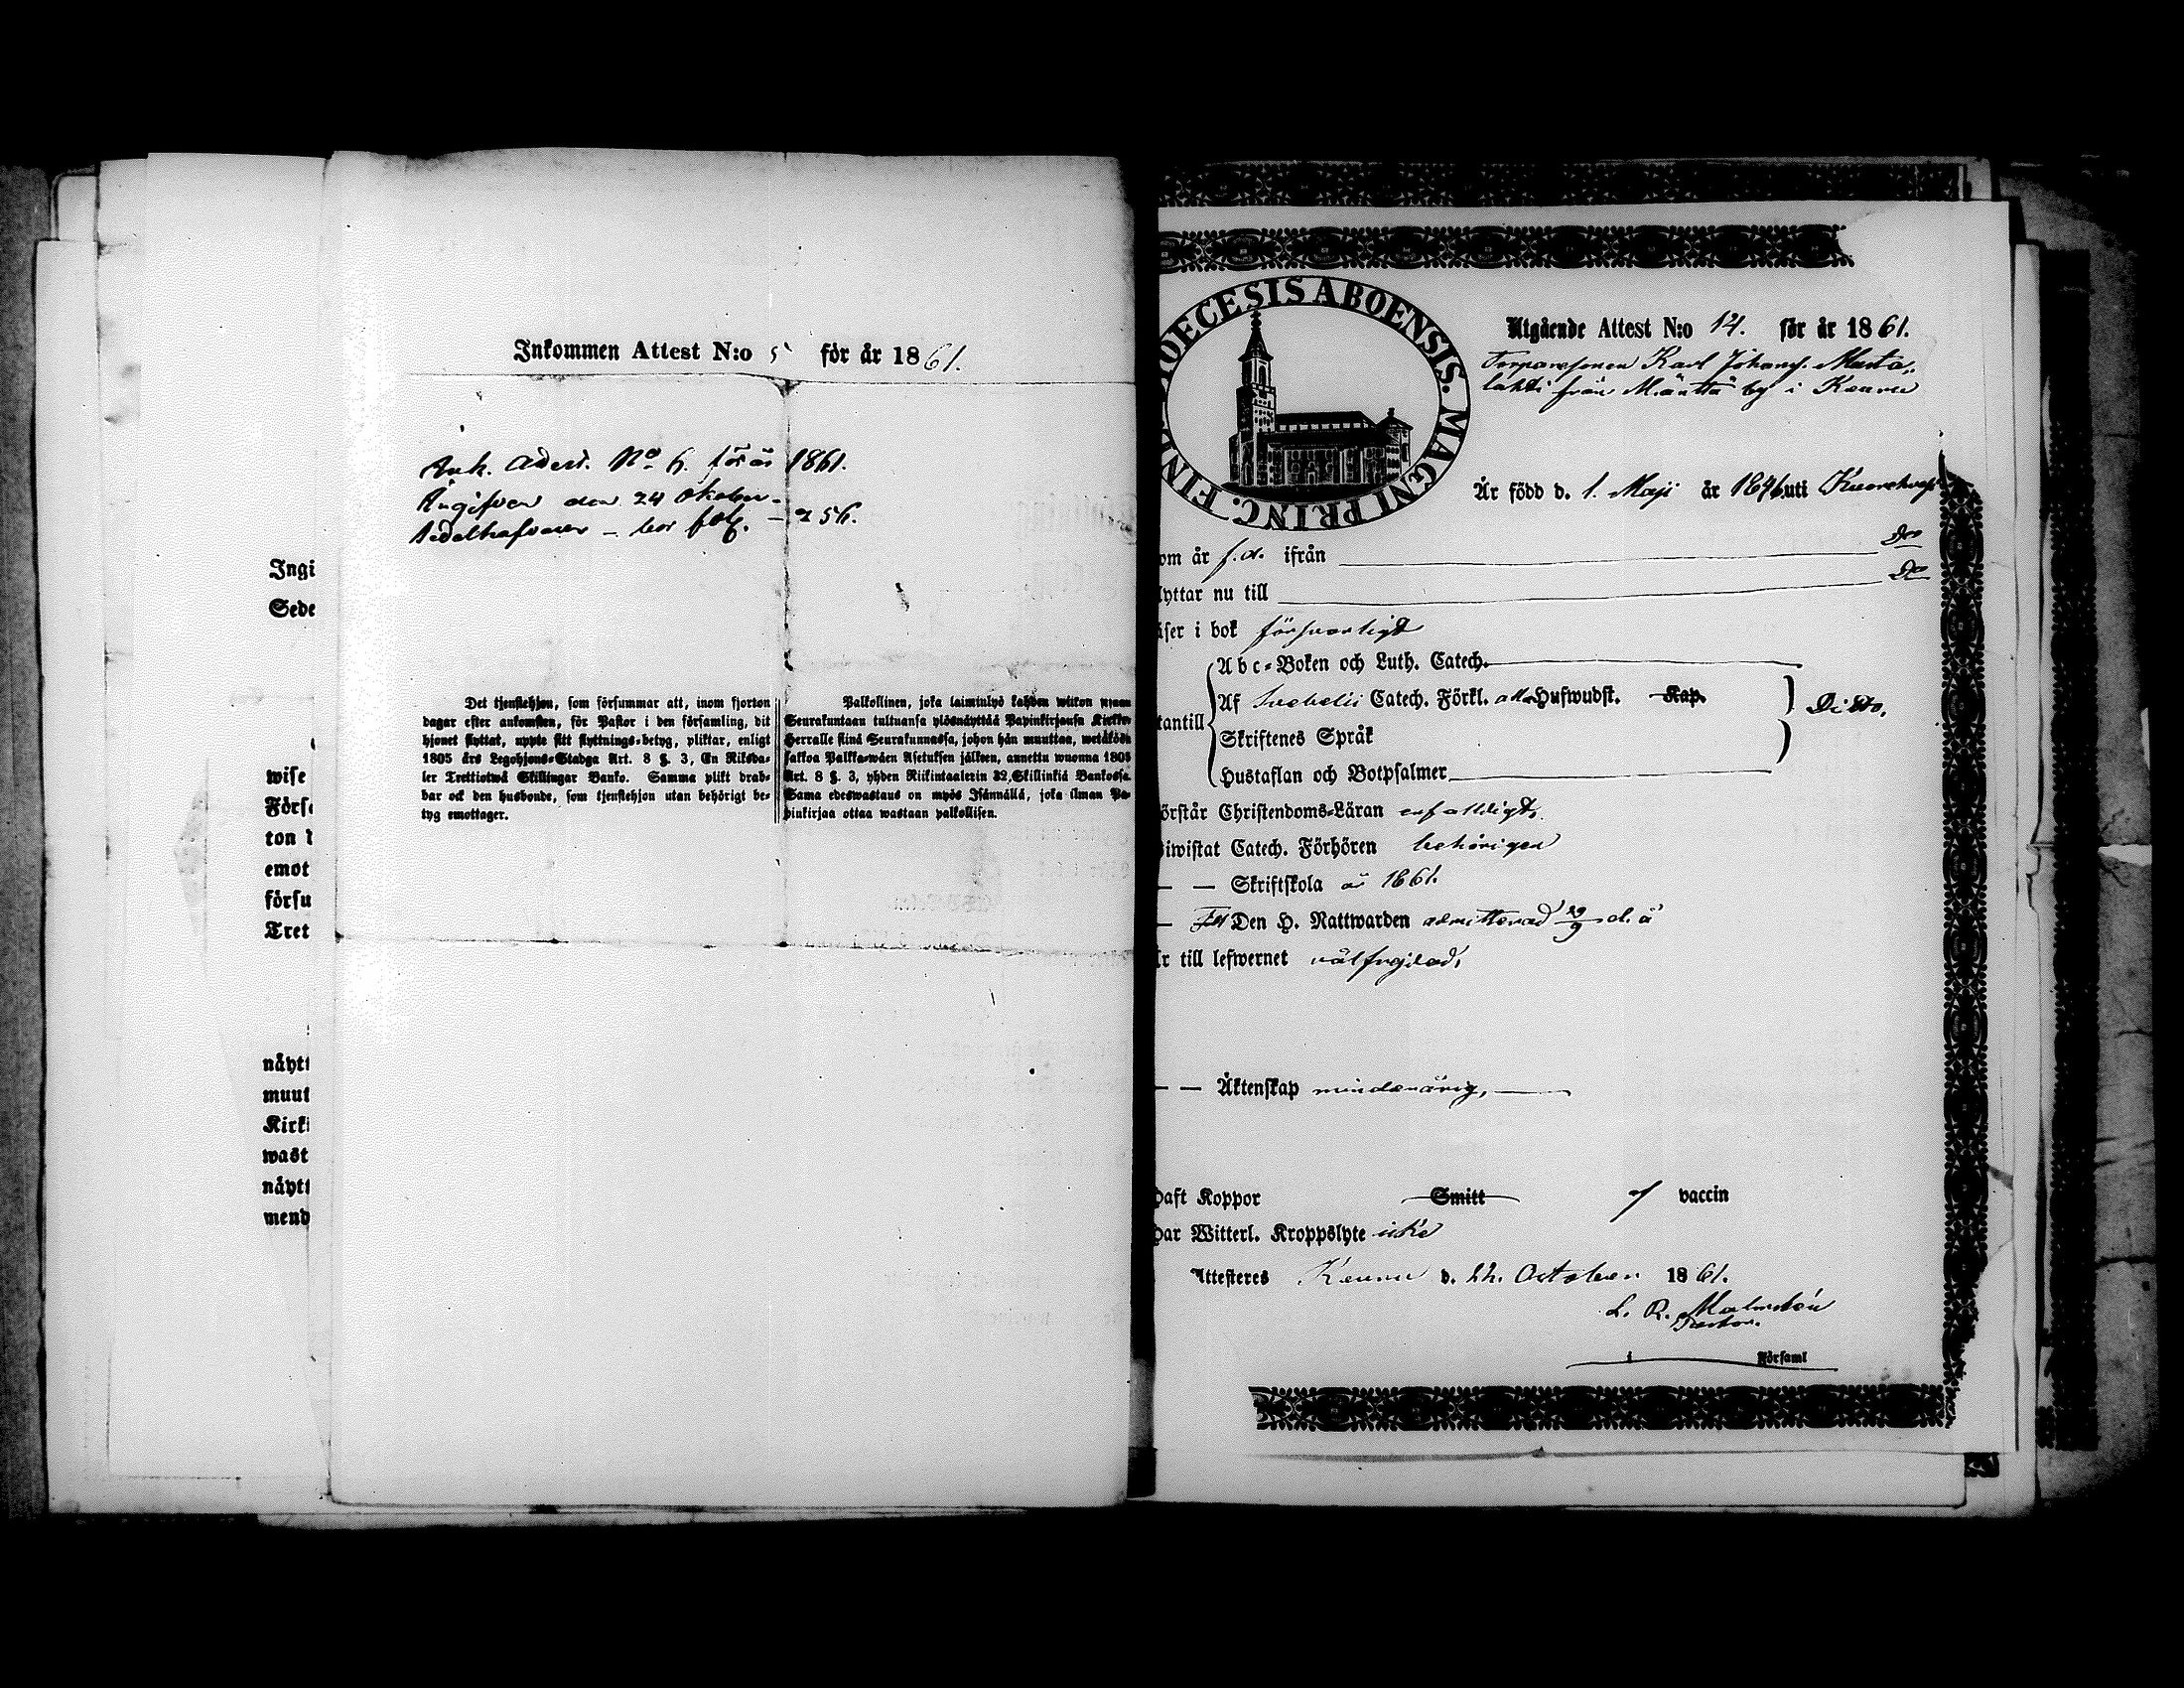 Ingi
Sede
wise
Förs
ton
emot
försu
Tret
näyt
muut
Kirk
wast
näyt
mend
Inkommen Attest N:o 5 för år 1861.
Ank. Advert. No 6. för år 1861.
Ingifven den 24 October
bor fol. 256.
Det tjenstehjon, som försummar att, inom fjorton
dagar efter ankomsten, för Pastor i den församling, dit
hjonet flyttat, uppte sitt flyttnings-betyg, pliktar, enligt
1805 års Legohjons-Stadga Art. 8 §. 3, En Riksda-
ler Trettiotwå Skillingar Banko. Samma plikt drab-
bar ock den husbonde, som tjenstehjon utan behörigt be-
tyg emottager.
Palkollinen, joka laiminlyö kahden wiikon
Seurakuntaan tultuansa ylösnäyttää Papinkirjansa Kirkko-
Herralle siinä Seurakunnassa, johon hän muuttaa, wetäköön
sakkoa Palkka-wäen Asetuksen jälkeen, annettu wuonna 1805
Art. 8 §. 3, yhden Riikintaalerin 32 Skillinkiä Bankossa.
Sama edeswastaus on myös Isännällä, joka ilman Pa-
pinkirjaa ottaa wastaan palkollisen.
DIOECESIS ABOENSIS. MAGNI PRINC. FINL.
Utgående Attest N:o 14. för år 1861.
Torparesonen Karl Johans. Musta-
lahti från Mänttä by i Keuru
Är född d. 1. Maji år 1846 uti
om år f.d. ifrån Do
lyttar nu till Do
äser i bok försvarligt
Abc-Boken och Luth. Catech.
tantill Af Svebelii Catech. Förkl. alla Hufwudst. Kap. Ditto.
Skriftenes Språk
Hustaflan och Botpsalmer
örstår Christendoms-Läran enfaldigt,
iwistat Catech. Förhören behörigen
— — Skriftskola år 1861.
— Till Den H. Nattwarden admitterad 29/9 d. å
är till lefwernet välfrejdad,
— — Äktenskap minderårig,
Haft Koppor Smitt af vaccin
Har Witterl. Kroppslyte icke
Attesteres Keuru d. 22. October 1861.
L. R. Malmstén
Pastor.
i Församl